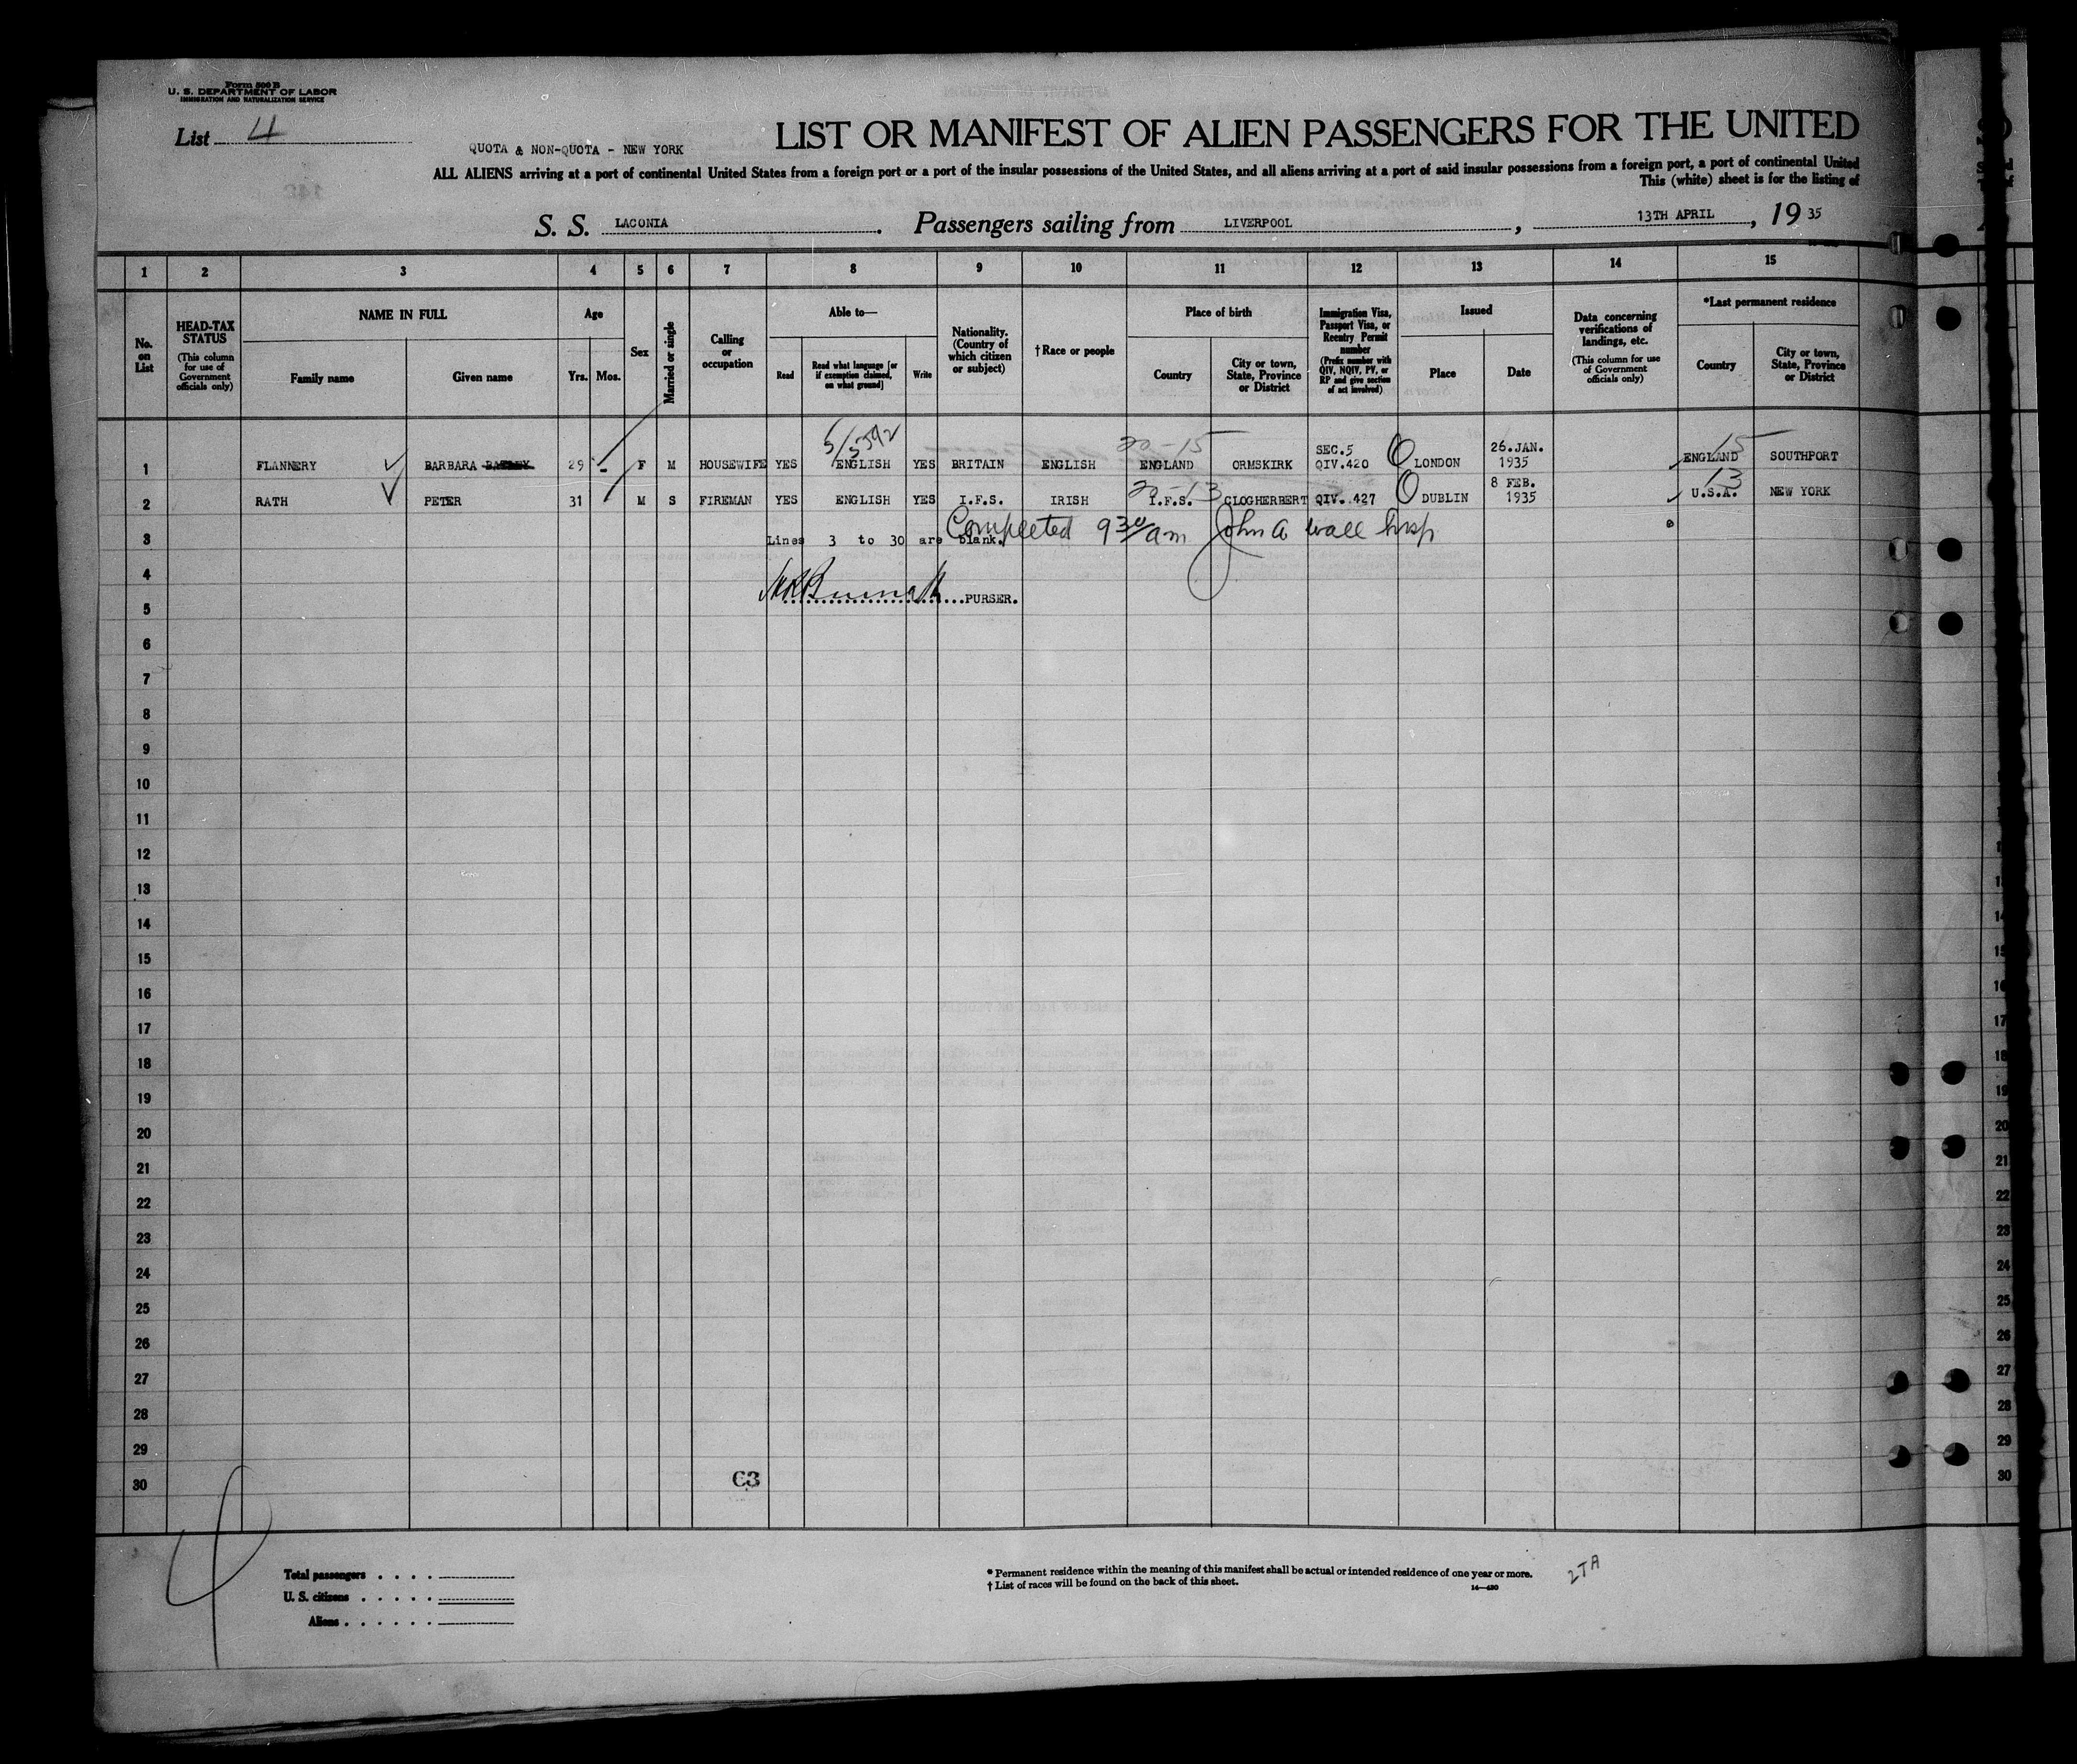 Form 500 B
U. S. DEPARTMENT OF LABOR
IMMIGRATION AND NATURALIZATION SERVICE
List 4
QUOTA & NON-QUOTA - NEW YORK
LIST OR MANIFEST OF ALIEN PASSENGERS FOR THE UNITED
ALL ALIENS arriving at a port of continental United States from a foreign port or a port of the insular possessions of the United States, and all aliens arriving at a port of said insular possessions from a foreign port, a port of continental United
This (white) sheet is for the listing of
S. S. LACONIA. Passengers sailing from LIVERPOOL, 13TH APRIL, 19 35
1 2 3 4 5 6 7 8 9 10 11 12 13 14 15
No. on List
HEAD-TAX STATUS (This column for use of Government officials only)
NAME IN FULL
Family name Given name
Age
Yrs. Mos.
Sex
Married or single
Calling or occupation
Able to—
Read
Read what language [or if exemption claimed, on what ground]
Write
Nationality. (Country of which citizen or subject)
†Race or people
Place of birth
Country
City or town, State, Province or District
Immigration Visa, Passport Visa, or Reentry Permit number (Prefix number with QIV, NQIV, PV, or RP and give section of act involved)
Issued
Place Date
Data concerning verifications of landings, etc. (This column for use of Government officials only)
*Last permanent residence
Country
City or town, State, Province or District
5/5392 20-15 SEC.5 26.JAN. 15
1 FLANNERY BARBARA 29 - F M HOUSEWIFE YES ENGLISH YES BRITAIN ENGLISH ENGLAND ORMSKIRK QIV.420 LONDON 1935 ENGLAND SOUTHPORT
20-13 8 FEB. 13
2 RATH PETER 31 M S FIREMAN YES ENGLISH YES I.F.S. IRISH I.F.S. CLOGHERBERT QIV. 427 DUBLIN 1935 U.S.A. NEW YORK
Completed 9 30/ am John A Wall Insp
3 Lines 3 to 30 are blank.
4
5 PURSER.
6
7
8
9
10
11
12
13
14
15
16
17
18
19
20
21
22
23
24
25
26
27
28
29
30
63
4
Total passengers . . . .
U. S. citizens . . . . .
Aliens . . . . . .
* Permanent residence within the meaning of this manifest shall be actual or intended residence of one year or more.
† List of races will be found on the back of this sheet.
14—430
2TA